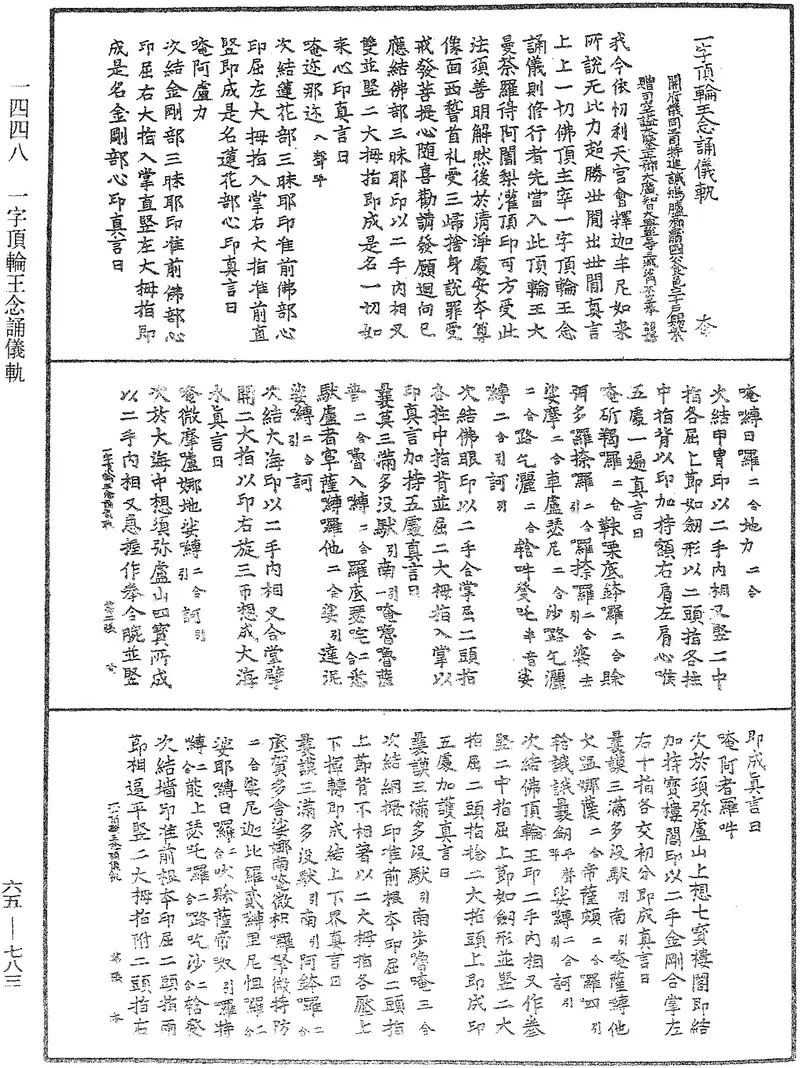 一四四八　一字頂輪王念誦儀軌
六五—七八三
一字頂輪王念誦儀軌
開府儀同三司特進試鴻臚卿肅國公食邑三千戶賜紫
贈司空謚大鑒正號大廣智大興善寺三藏沙門不空奉 詔譯
我今依忉利天宮會釋迦牟尼如来
所說无比力超勝世間出世間真言
上上一切佛頂主宰一字頂輪王念
誦儀則修行者先當入此頂輪王大
曼荼羅得阿闍梨灌頂印可方受此
法須善明解然後於清淨處安本尊
像面西稽首礼受三歸捨身說罪受
戒發菩提心隨喜勸請發願迴向已
應結佛部三昧耶印以二手內相叉
雙並竪二大拇指即成是名一切如
来心印真言曰
唵迩那迩入聲呼
次結蓮花部三昧耶印准前佛部心
印屈左大拇指入掌右大指准前直
竪即成是名蓮花部心印真言曰
唵阿盧力
次結金剛部三昧耶印准前佛部心
印屈右大指入掌直竪左大拇指即
成是名金剛部心印真言曰
唵嚩日囉二合地力二合
次結甲冑印以二手內相叉竪二中
指各屈上節如劒形以二頭指各拄
中指背以印加持額右肩左肩心喉
五處一遍真言曰
唵斫羯囉二合靺栗底鉢囉二合賒
弭多囉捺囉二合囉捺囉二合娑去
娑摩二合車盧瑟尼二合沙路乞灑
二合路乞灑二合𤙖吽發吒半音娑
嚩二合引訶引
次結佛眼印以二手合掌屈二頭指
各拄中指背並屈二大拇指入掌以
印真言加持五處真言曰
曩莫三滿多没馱引南一引唵嚕嚕薩
普二合嚕入嚩二合羅底瑟吒二合悉
馱盧者寧薩嚩囉他二合娑引達泥
娑嚩二合引訶
次結大海印以二手內相叉合掌擘
開二大指以印右旋三帀想成大海
水真言曰
唵微摩盧娜地娑嚩二合引訶引
次於大海中想須弥盧山四寶所成
以二手內相叉急握作拳合腕並竪
即成真言曰
唵阿者羅吽
次於須弥盧山上想七寶樓閣即結
加持寶樓閣印以二手金剛合掌左
右十指各交初分即成真言曰
曩謨三滿多没馱引南引唵薩嚩他
次結佛頂輪王印二手內相叉作拳
竪二中指屈上節如劒形並竪二大
指屈二頭指捻二大指頭上即成印
五處加護真言曰
曩謨三滿多没馱引南步嚕唵三合
次結網橛印准前根本印屈二頭指
上節背不相著以二大拇指各壓上
下揮轉即成結上下界真言曰
次結墻印准前根本印屈二頭指兩
節相逼平竪二大拇指附二頭指右